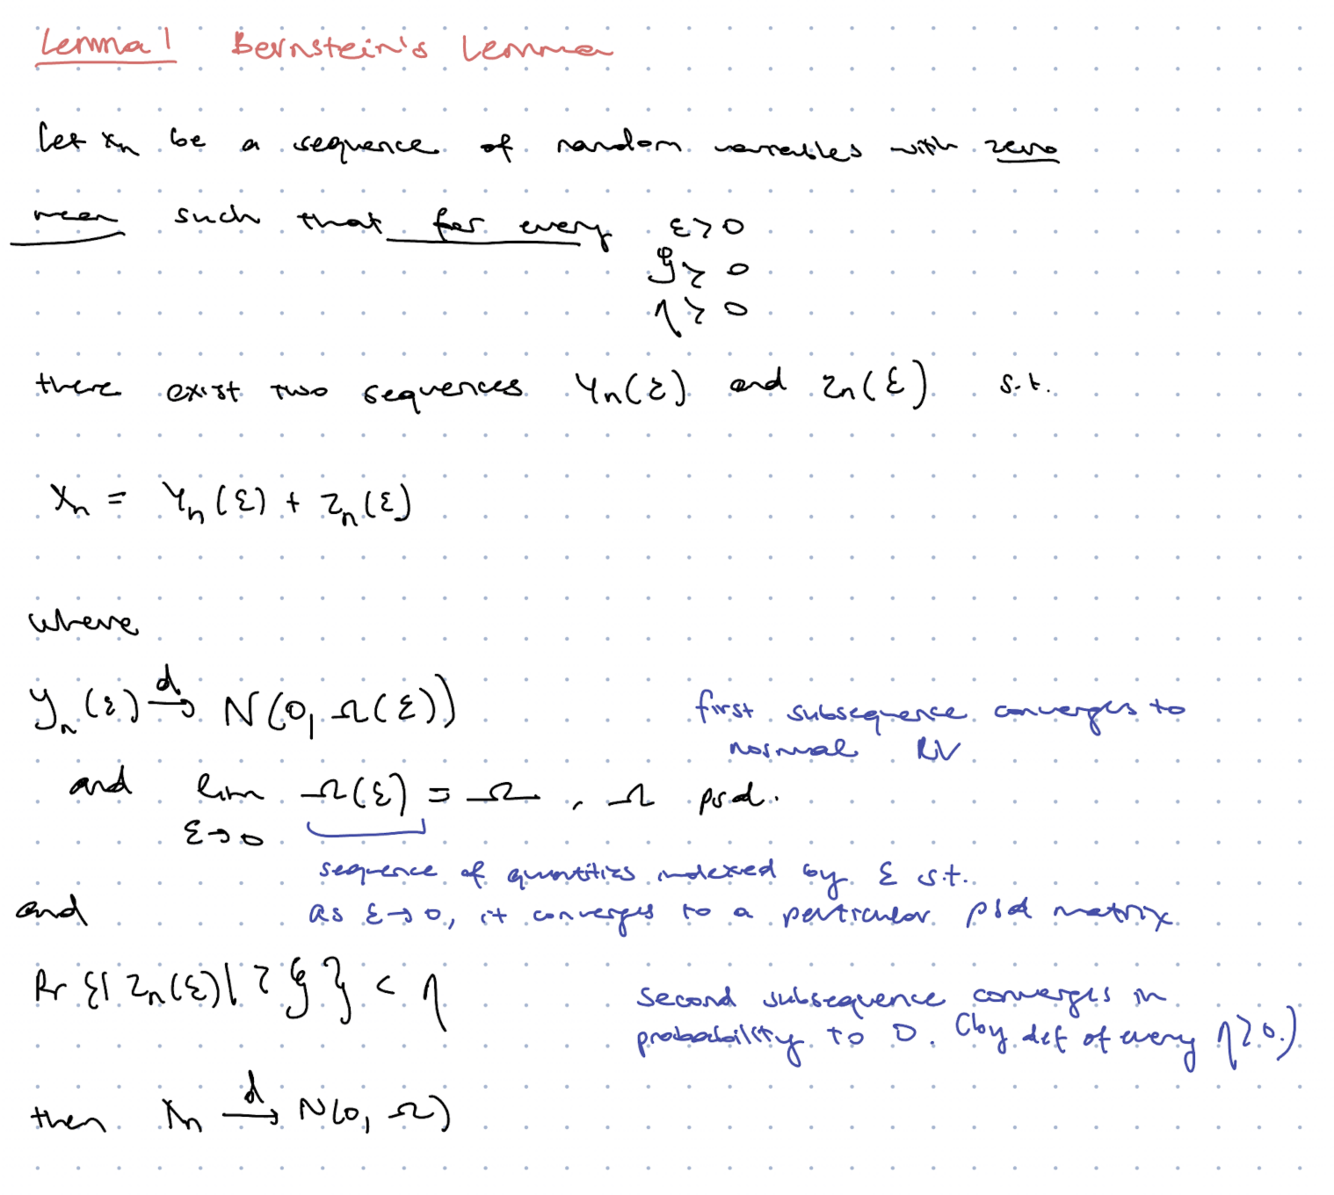 Lemma 1 Bernstein's Lemma
Let xn be a sequence of random variables with zero
mean such that for every ε>0
ξ>0
η>0
there exist two sequences Yn(ε) and Zn(ε) s.t.
Xn = Yn(ε) + Zn(ε)
where
Yn(ε) →d N(0, Ω(ε))
first subsequence converges to
normal RV
and lim Ω(ε) = Ω, Ω psd.
ε→0
sequence of quantities indexed by ε s.t.
and
as ε→0, it converges to a particular psd matrix
Pr {| Zn(ε)| > ξ } < η
second subsequence converges in
probability to 0. (by def of every η>0.)
then Xn →d N(0, Ω)